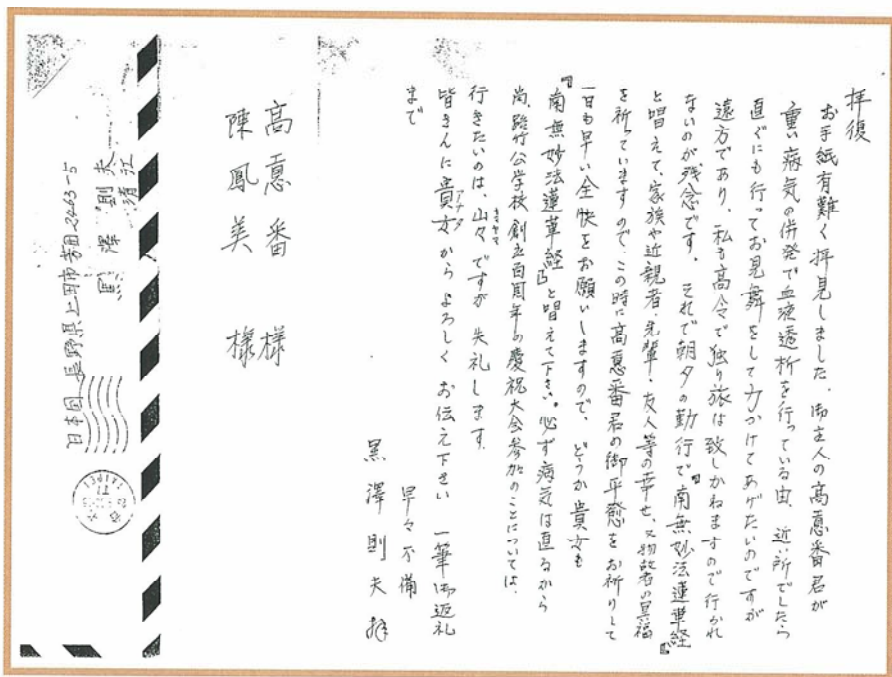 拝復
お手紙有難く拝見しました。御主人の高悳番君が
重い病気の併発で血液透析を行っている由、近い所でしたら
直ぐにも行ってお見舞をして力かけてあげたいのですが
遠方であり、私も高令で独り旅は致しかねますので行かれ
ないのが残念です。それで朝夕の勤行で『南無妙法蓮華経』
と唱えて、家族や近親者、先輩・友人等の幸せ、又物故者の冥福
を祈っていますので、この時に高悳番君の御平癒をお祈りして
一日も早い全快をお願いしますので、どうか貴女も
『南無妙法蓮華経』と唱えて下さい。必ず病気は直るから
尚、路竹公学校創立百周年の慶祝大会参加のことについては、
行きたいのは、山々ヤマヤマですが失礼します。
皆さんに貴女アナタからよろしくお伝え下さい 一筆御返礼
まで
早々不備
黒澤則夫拝
高悳番様
陳鳳美様
黒澤則夫
清江
日本国長野県上田市芳田2463-5
TAIPEI